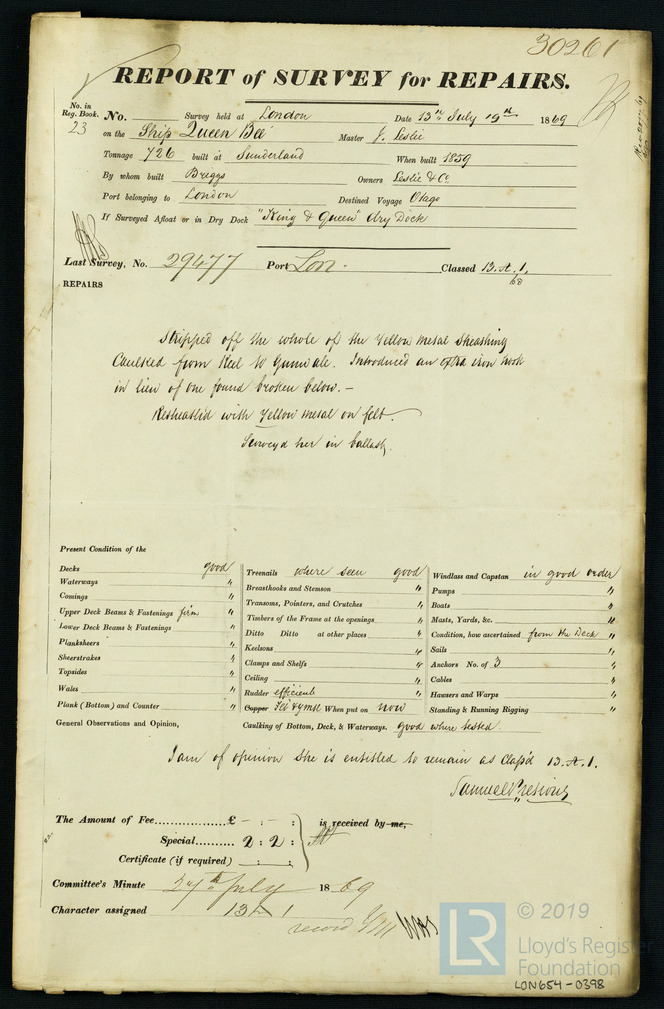 30261
REPORT of SURVEY for REPAIRS.
No. in
Reg. Book.
23
No. Survey held at London Date 13th July 19th 1869
on the Ship Queen Bee Master J. Leslie
Tonnage 726 built at Sunderland When built 1859
By whom built Briggs Owners Leslie & Co
Port belonging to London Destined Voyage Otago
If Surveyed Afloat or in Dry Dock "King & Queen" dry Dock
Last Survey, No. 29477 Port Lon. Classed 13.A.1.
68
REPAIRS
Stripped off the whole of the Yellow Metal Sheathing
Caulked from Keel to Gunwale. Introduced an extra iron hook
in lieu of one found broken below.—
Resheathed with Yellow Metal on felt.
Surveyd her in ballast.
Present Condition of the
Decks good
Waterways "
Comings "
Upper Deck Beams & Fastenings firm
Lower Deck Beams & Fastenings "
Planksheers "
Sheerstrakes "
Topsides "
Wales "
Plank (Bottom) and Counter "
General Observations and Opinion,
Treenails where seen good
Breasthooks and Stemson "
Transoms, Pointers, and Crutches "
Timbers of the Frame at the openings "
Ditto Ditto at other places "
Keelsons "
Clamps and Shelfs "
Ceiling "
Rudder efficient "
Copper Felt & YMtl When put on now
Caulking of Bottom, Deck, & Waterways. good where tested.
Windlass and Capstan in good order
Pumps "
Boats "
Masts, Yards, &c. "
Condition, how ascertained from the Deck "
Sails "
Anchors No. of 3 "
Cables "
Hawsers and Warps "
Standing & Running Rigging "
I am of opinion she is entitled to remain as Class'd 13.A.1.
Samuel Pretious
The Amount of Fee £ - : - : is received by me,
Special 2 : 2 :
Certificate (if required) : :
Committee's Minute 27th July 1869
Character assigned 13 A 1
record
LR
© 2019
Lloyd's Register
Foundation
LON654-0398